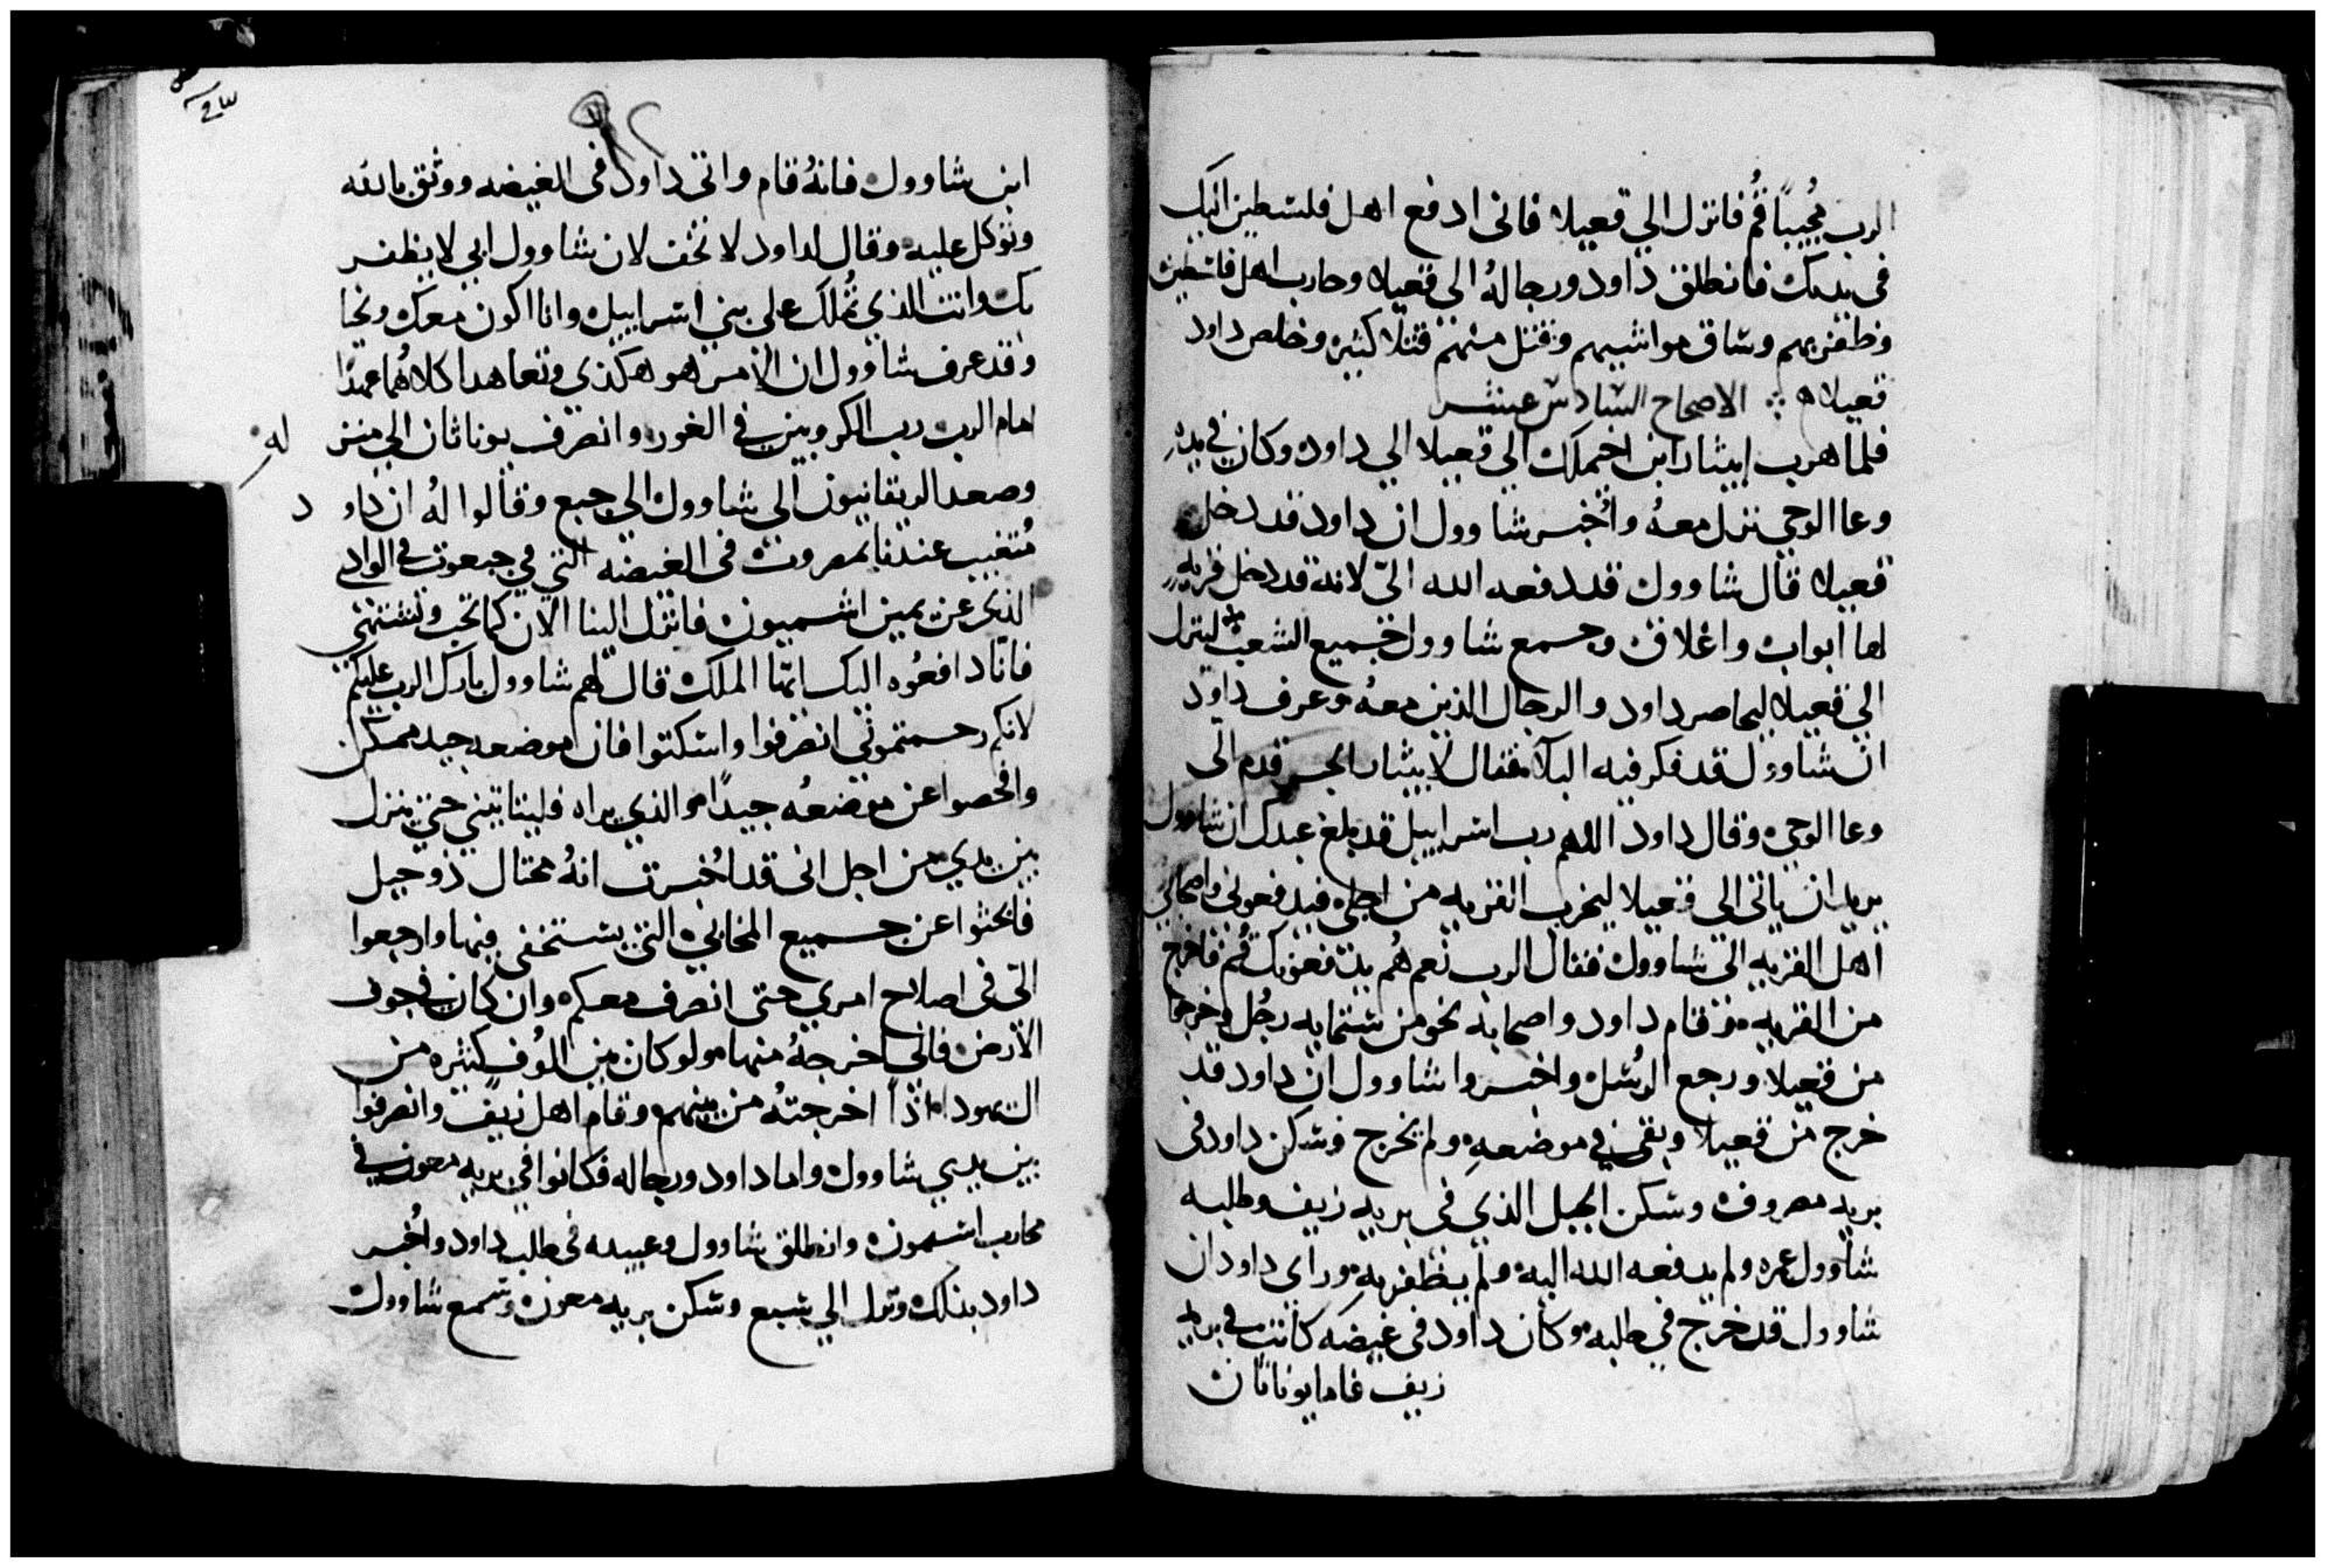 الرب مجُيباً قُم فانزل الي قعيلا فاني ادفع اهل فلسطين اليك
في يديك فانطلق داود ورجالهُ الي قعيلا وحارب اهل فلسطين
وظفر بهم وساق مواشيهم وقتل منهم قتلا كثيره وخلص داود
قعيلا الاصحاح السادس عشر
فلما هرب ابيثار ابن اخيملك الي قعيلا الي داود وكان في يده
وعا الوحي نزل معهُ واُخبر شاوول ان داود قد دخل
قعيلا قال شاوول قد دفعه الله اليّ لانه قد دخل قريه
لها ابواب واغلاق وجمع شاوول جميع الشعب لينزل
الي قعيلا ليحاصر داود والرجال الذين معهُ وعرف داود
ان شاوول قد فكر فيه البلا فقال لابيثار الحبر قدم الي
وعا الوحي وقال داود اللهم رب اسراييل قد بلغ عبدك ان شاوول
يريد ان ياتي الي قعيلا ليخرب القريه من اجلي فيدفعوني واصحابي
اهل القريه الي شاوول فقال الرب نعم هُم يدفعونك قُم فاخرج
من القريه فقام داود واصحابه نحو من ستمايه رجُل وخرجوا
من قعيلا ورجع الرُسل واخبروا شاوول ان داود قد
خرج من قعيلا وبقي في موضعهِ ولم يخرج وسكن داود في
بريه مصروث وسكن الجبل الذي في بريه زيف وطلبه
شاوول عمره ولم يدفعه الله اليه ولم يظفر بهِ وراي داود ان
شاوول قد خرج في طلبه وكان داود في غيضه كانت في بريه
زيف فاما يوناثان
ابن شاوول فانهُ قام واتي داود في الغيضه ووثق بالله
وتوكل عليه وقال لداود لا تخف لان شاوول ابي لا يظفر
بك وانت الذي تُملك علي بني اسراييل وانا اكون معك
وقد عرف شاوول ان الامر هو هكذي وتعاهدا كلاهُما عهدًا
امام الرب رب الكروبين في الغور وانصرف يوناثان الي منز له
وصعد الريقانيون الي شاوول الي جبع وقالوا لهُ ان داو د
مُتغيب عندنا بمصروث في الغيضه التي في جبعوت في الوادي
الذي عن يمين اشميون فانزل الينا الان كما تحب وتشتهي
فانّا دافعُوه اليك ايها الملك قال لهم شاوول بارك الرب عليكم
لانكم رحمتموني انصرفوا واسكتوا فان موضعه جيد ممكن
وافحصوا عن موضعُه جيدًا والذي يراه فلياتيني حتي ينزل
بين يدي من اجل اني قد اُخبرت انهُ محتال ذو حيل
فابحثوا عن جميع المخابي التي يستخفي فيها وارجعوا
اليّ في اصلاح امري حتي انصرف معكم وان كان في جوف
الارض فاني اخرجهُ منها ولو كان بين اُلوُف كثيره من
اليهودا اذاً اخرجتهُ من بينهم وقام اهل زيف وانصرفوا
بين يدي شاوول واما داود ورجاله فكانوا في بريه معون في
محارب اشيمون وانطلق شاوول وعبيده في طلب داود واُخبر
داود بذلك ونزل الي شبع وسكن بريه معون وسمع شاوول